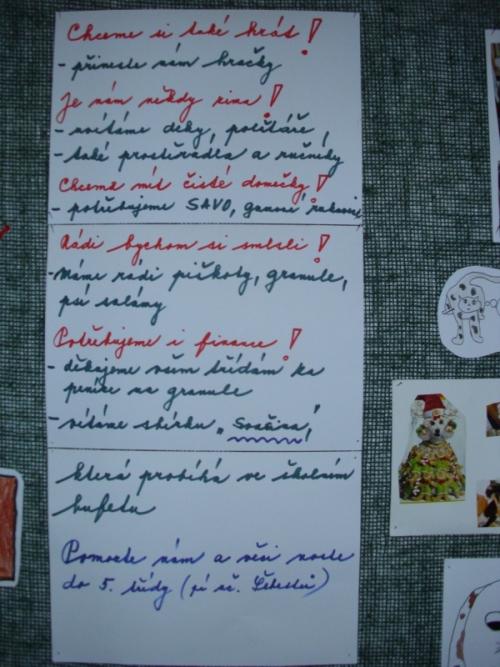 Chceme si také hrát!
- přineste nám hračky
Je nám někdy zima!
- uvítáme deky, polštáře,
- také prostěradla a ručníky
Chceme mít čisté domečky!
- potřebujeme SAVO, gumové rukavice
Rádi bychom si smlsli!
- Máme rádi piškoty, granule,
psí salámy
Potřebujeme i finance!
- děkujeme všem třídám za
peníze na granule
- vítáme sbírku „
která probíhá ve školním
bufetu
Pomozte nám a věci noste
do 5. třídy (pí uč.